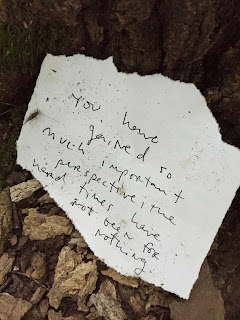 You have
gained so
much important
perspective; the
hard times have
not been for
nothing.